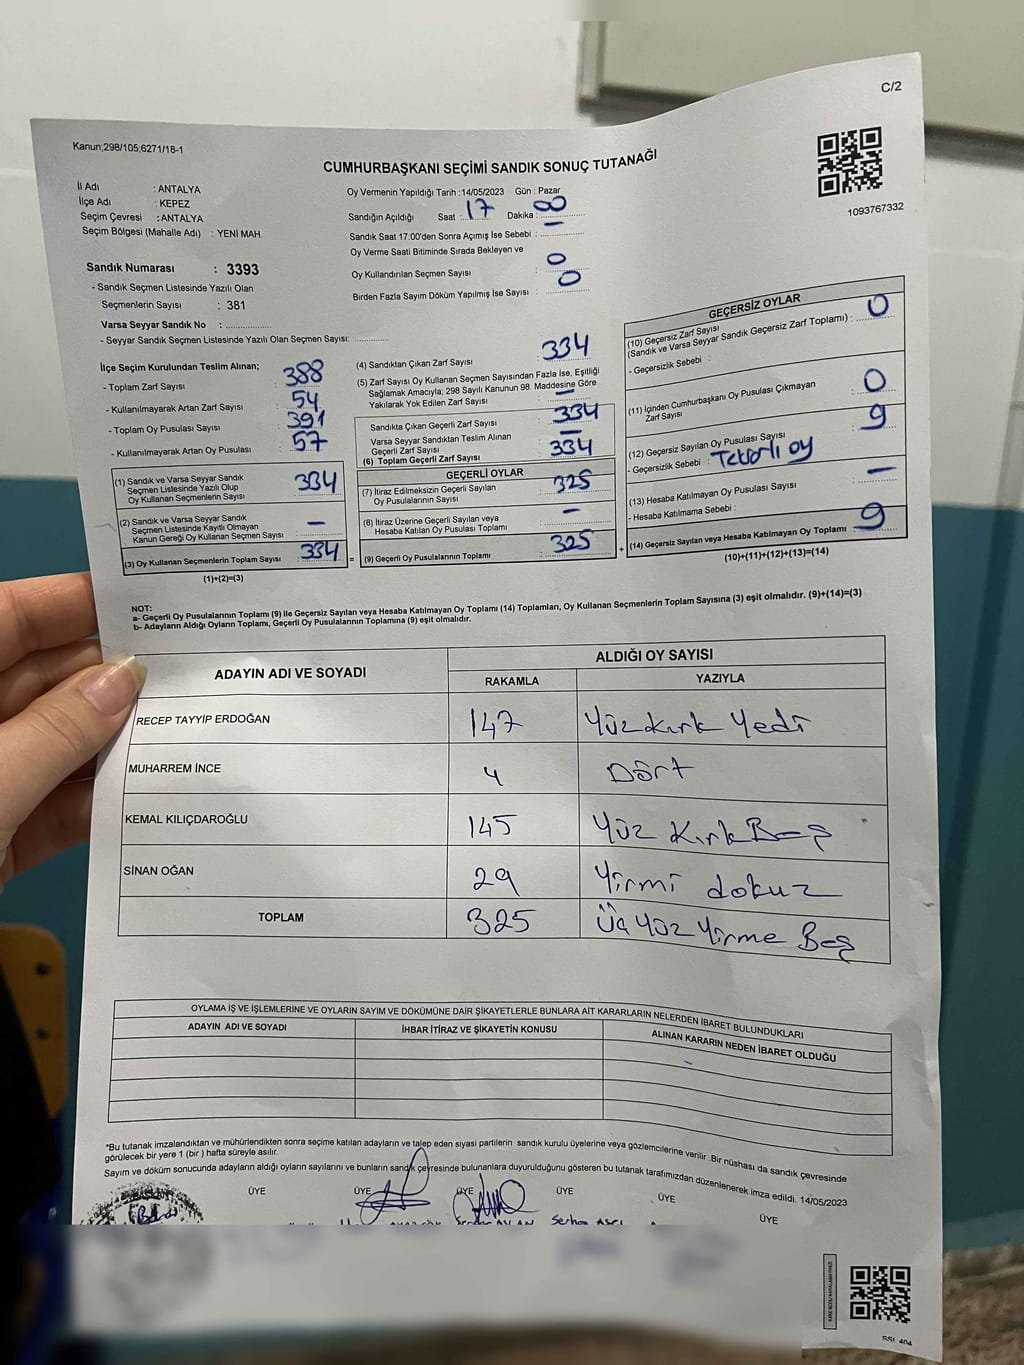 C/2
Kanun;298/105;6271/18-1
CUMHURBAŞKANI SEÇİMİ SANDIK SONUÇ TUTANAĞI
1093767332
İl Adı : ANTALYA
İlçe Adı : KEPEZ
Seçim Çevresi : ANTALYA
Seçim Bölgesi (Mahalle Adı) : YENİ MAH.
Sandık Numarası : 3393
- Sandık Seçmen Listesinde Yazılı Olan
Seçmenlerin Sayısı : 381
Varsa Seyyar Sandık No : ..................
- Seyyar Sandık Seçmen Listesinde Yazılı Olan Seçmen Sayısı: ..............
Oy Vermenin Yapıldığı Tarih :14/05/2023 Gün : Pazar
Sandığın Açıldığı Saat : 17 Dakika : 00
Sandık Saat 17:00'den Sonra Açımış İse Sebebi : —
Oy Verme Saati Bitiminde Sırada Bekleyen ve
Oy Kullandırılan Seçmen Sayısı : 0
Birden Fazla Sayım Döküm Yapılmış İse Sayısı : 0
İlçe Seçim Kurulundan Teslim Alınan;
- Toplam Zarf Sayısı : 388
- Kullanılmayarak Artan Zarf Sayısı : 54
- Toplam Oy Pusulası Sayısı : 391
- Kullanılmayarak Artan Oy Pusulası : 57
(1) Sandık ve Varsa Seyyar Sandık
Seçmen Listesinde Yazılı Olup
Oy Kullanan Seçmenlerin Sayısı : 334
(2) Sandık ve Varsa Seyyar Sandık
Seçmen Listesinde Kayıtlı Olmayan
Kanun Gereği Oy Kullanan Seçmen Sayısı : —
(3) Oy Kullanan Seçmenlerin Toplam Sayısı : 334
(1)+(2)=(3)
(4) Sandıktan Çıkan Zarf Sayısı : 334
(5) Zarf Sayısı Oy Kullanan Seçmen Sayısından Fazla İse, Eşitliği
Sağlamak Amacıyla; 298 Sayılı Kanunun 98. Maddesine Göre
Yakılarak Yok Edilen Zarf Sayısı : —
Sandıkta Çıkan Geçerli Zarf Sayısı : 334
Varsa Seyyar Sandıktan Teslim Alınan
Geçerli Zarf Sayısı : —
(6) Toplam Geçerli Zarf Sayısı : 334
GEÇERLİ OYLAR
(7) İtiraz Edilmeksizin Geçerli Sayılan
Oy Pusulalarının Sayısı : 325
(8) İtiraz Üzerine Geçerli Sayılan veya
Hesaba Katılan Oy Pusulası Toplamı : —
= (9) Geçerli Oy Pusulalarının Toplamı : 325
GEÇERSİZ OYLAR
(10) Geçersiz Zarf Sayısı
(Sandık ve Varsa Seyyar Sandık Geçersiz Zarf Toplamı) : 0
- Geçersizlik Sebebi :
(11) İçinden Cumhurbaşkanı Oy Pusulası Çıkmayan
Zarf Sayısı : 0
(12) Geçersiz Sayılan Oy Pusulası Sayısı : 9
- Geçersizlik Sebebi : Tekrarlı oy
(13) Hesaba Katılmayan Oy Pusulası Sayısı : —
- Hesaba Katılmama Sebebi :
+ (14) Geçersiz Sayılan veya Hesaba Katılmayan Oy Toplamı : 9
(10)+(11)+(12)+(13)=(14)
NOT:
a- Geçerli Oy Pusulalarının Toplamı (9) ile Geçersiz Sayılan veya Hesaba Katılmayan Oy Toplamı (14) Toplamları, Oy Kullanan Seçmenlerin Toplam Sayısına (3) eşit olmalıdır. (9)+(14)=(3)
b- Adayların Aldığı Oyların Toplamı, Geçerli Oy Pusulalarının Toplamına (9) eşit olmalıdır.
ADAYIN ADI VE SOYADI ALDIĞI OY SAYISI
RAKAMLA YAZIYLA
RECEP TAYYİP ERDOĞAN 147 Yüz kırk Yedi
MUHARREM İNCE 4 Dört
KEMAL KILIÇDAROĞLU 145 Yüz Kırk Beş
SİNAN OĞAN 29 Yirmi dokuz
TOPLAM 325 Üç Yüz Yirme Beş
OYLAMA İŞ VE İŞLEMLERİNE VE OYLARIN SAYIM VE DÖKÜMÜNE DAİR ŞİKAYETLERLE BUNLARA AİT KARARLARIN NELERDEN İBARET BULUNDUKLARI
ADAYIN ADI VE SOYADI İHBAR İTİRAZ VE ŞİKAYETİN KONUSU ALINAN KARARIN NEDEN İBARET OLDUĞU
*Bu tutanak imzalandıktan ve mühürlendikten sonra seçime katılan adayların ve talep eden siyasi partilerin sandık kurulu üyelerine veya gözlemcilerine verilir. Bir nüshası da sandık çevresinde
görülecek bir yere 1 (bir ) hafta süreyle asılır.
Sayım ve döküm sonucunda adayların aldığı oyların sayılarını ve bunların sandık çevresinde bulunanlara duyurulduğunu gösteren bu tutanak tarafımızdan düzenlenerek imza edildi. 14/05/2023
BAŞKAN ÜYE ÜYE ÜYE ÜYE ÜYE ÜYE